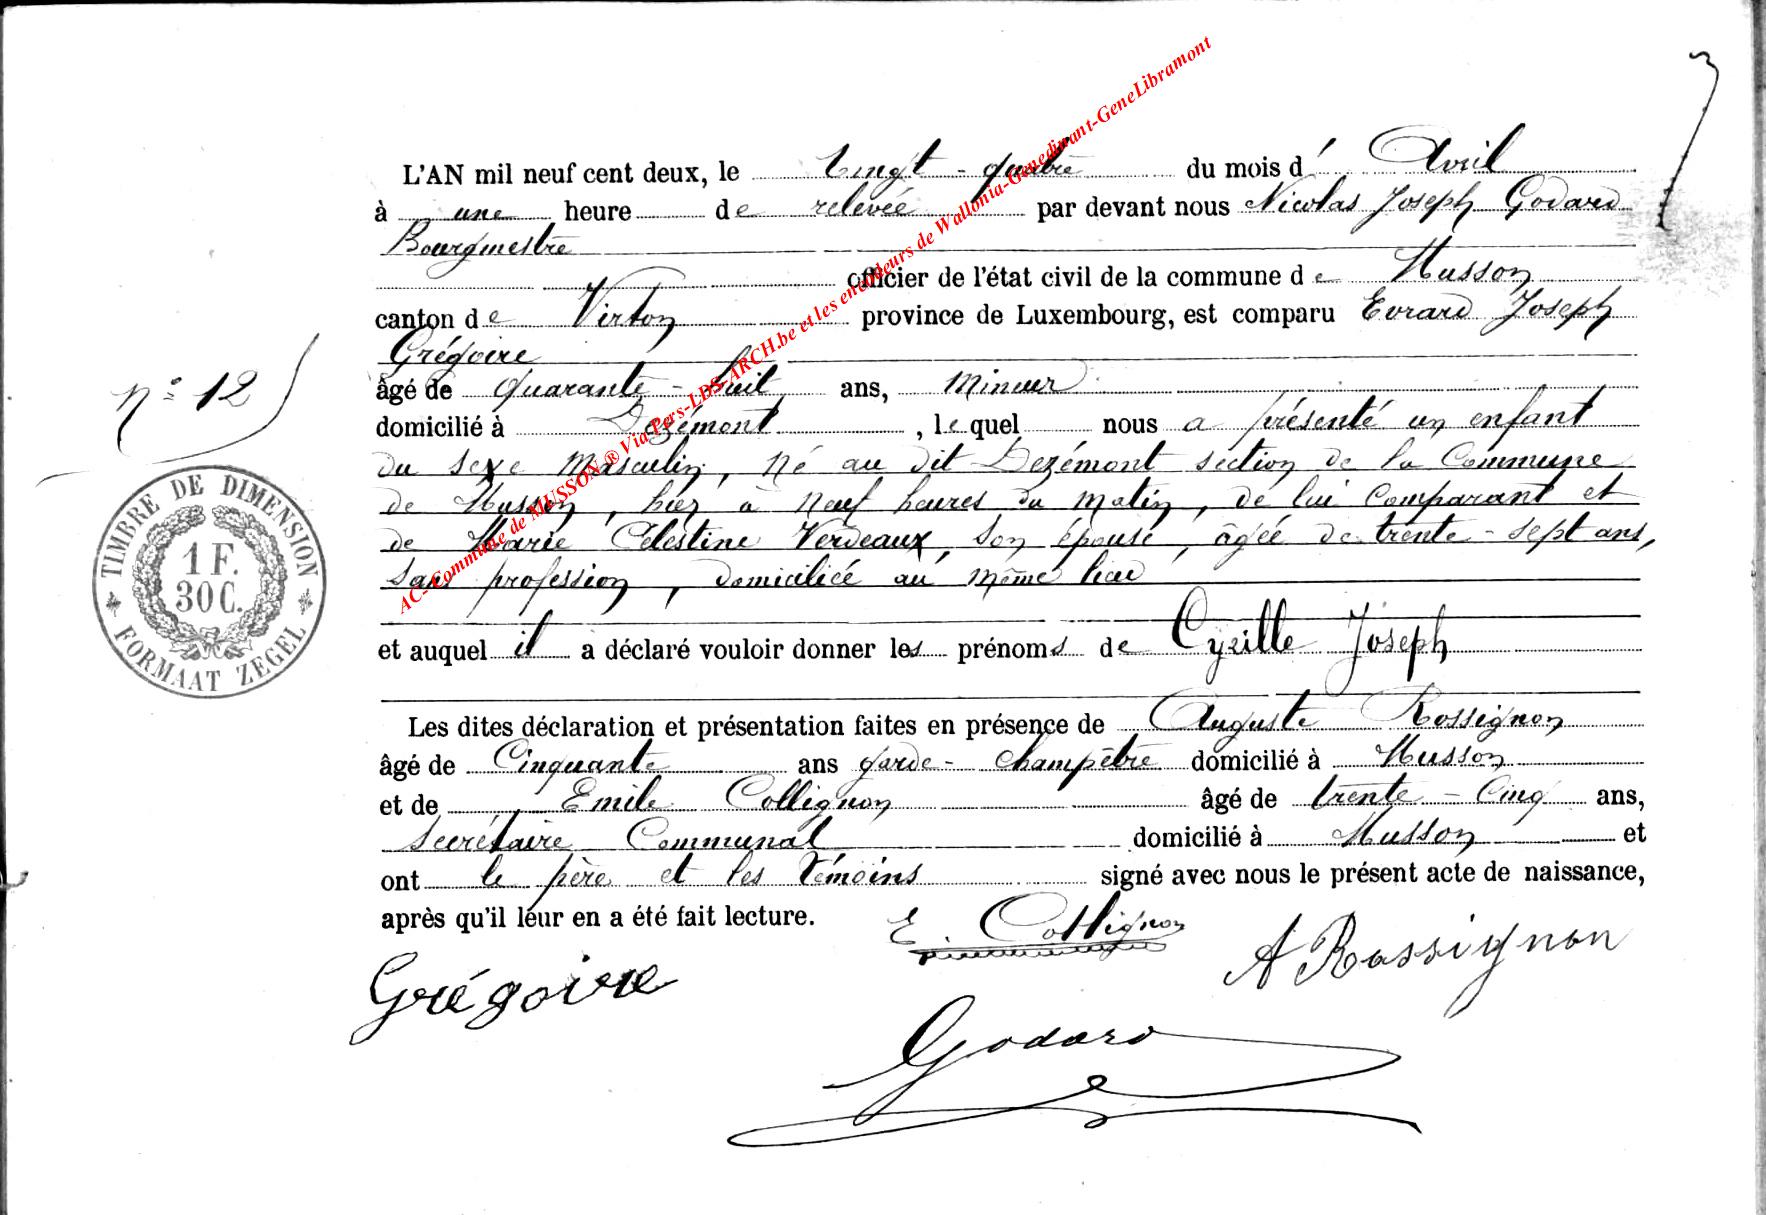 L'AN mil neuf cent deux, le vingt-quatre du mois d' Avril
à une heure de relevée par devant nous Nicolas Joseph Godard
Bourgmestre
officier de l'état civil de la commune de Musson
canton de Virton province de Luxembourg, est comparu Evrard Joseph
Grégoire
âgé de quarante-huit ans, mineur
domicilié à Dezémont, lequel nous a présenté un enfant
du sexe masculin, né au dit Dezémont section de la Commune
de Musson, hier à neuf heures du matin, de lui comparant et
de Marie Célestine Verdeaux, son épouse, âgée de trente-sept ans,
sans profession, domiciliée au même lieu
et auquel il a déclaré vouloir donner les prénoms de Cyrille Joseph
Les dites déclaration et présentation faites en présence de Auguste Rossignon
âgé de Cinquante ans garde-champêtre domicilié à Musson
et de Emile Collignon âgé de trente-cinq ans,
Secrétaire Communal domicilié à Musson et
ont le père et les témoins signé avec nous le présent acte de naissance,
après qu'il leur en a été fait lecture.
E. Collignon
A Rossignon
Grégoire
Godard
n° 12
TIMBRE DE DIMENSION
1 F.
30 C.
FORMAAT ZEGEL
AC-Commune de MUSSON ® Via Pers-LDS-ARCH.be et les encodeurs de Wallonia-Genedinant-GeneLibramont